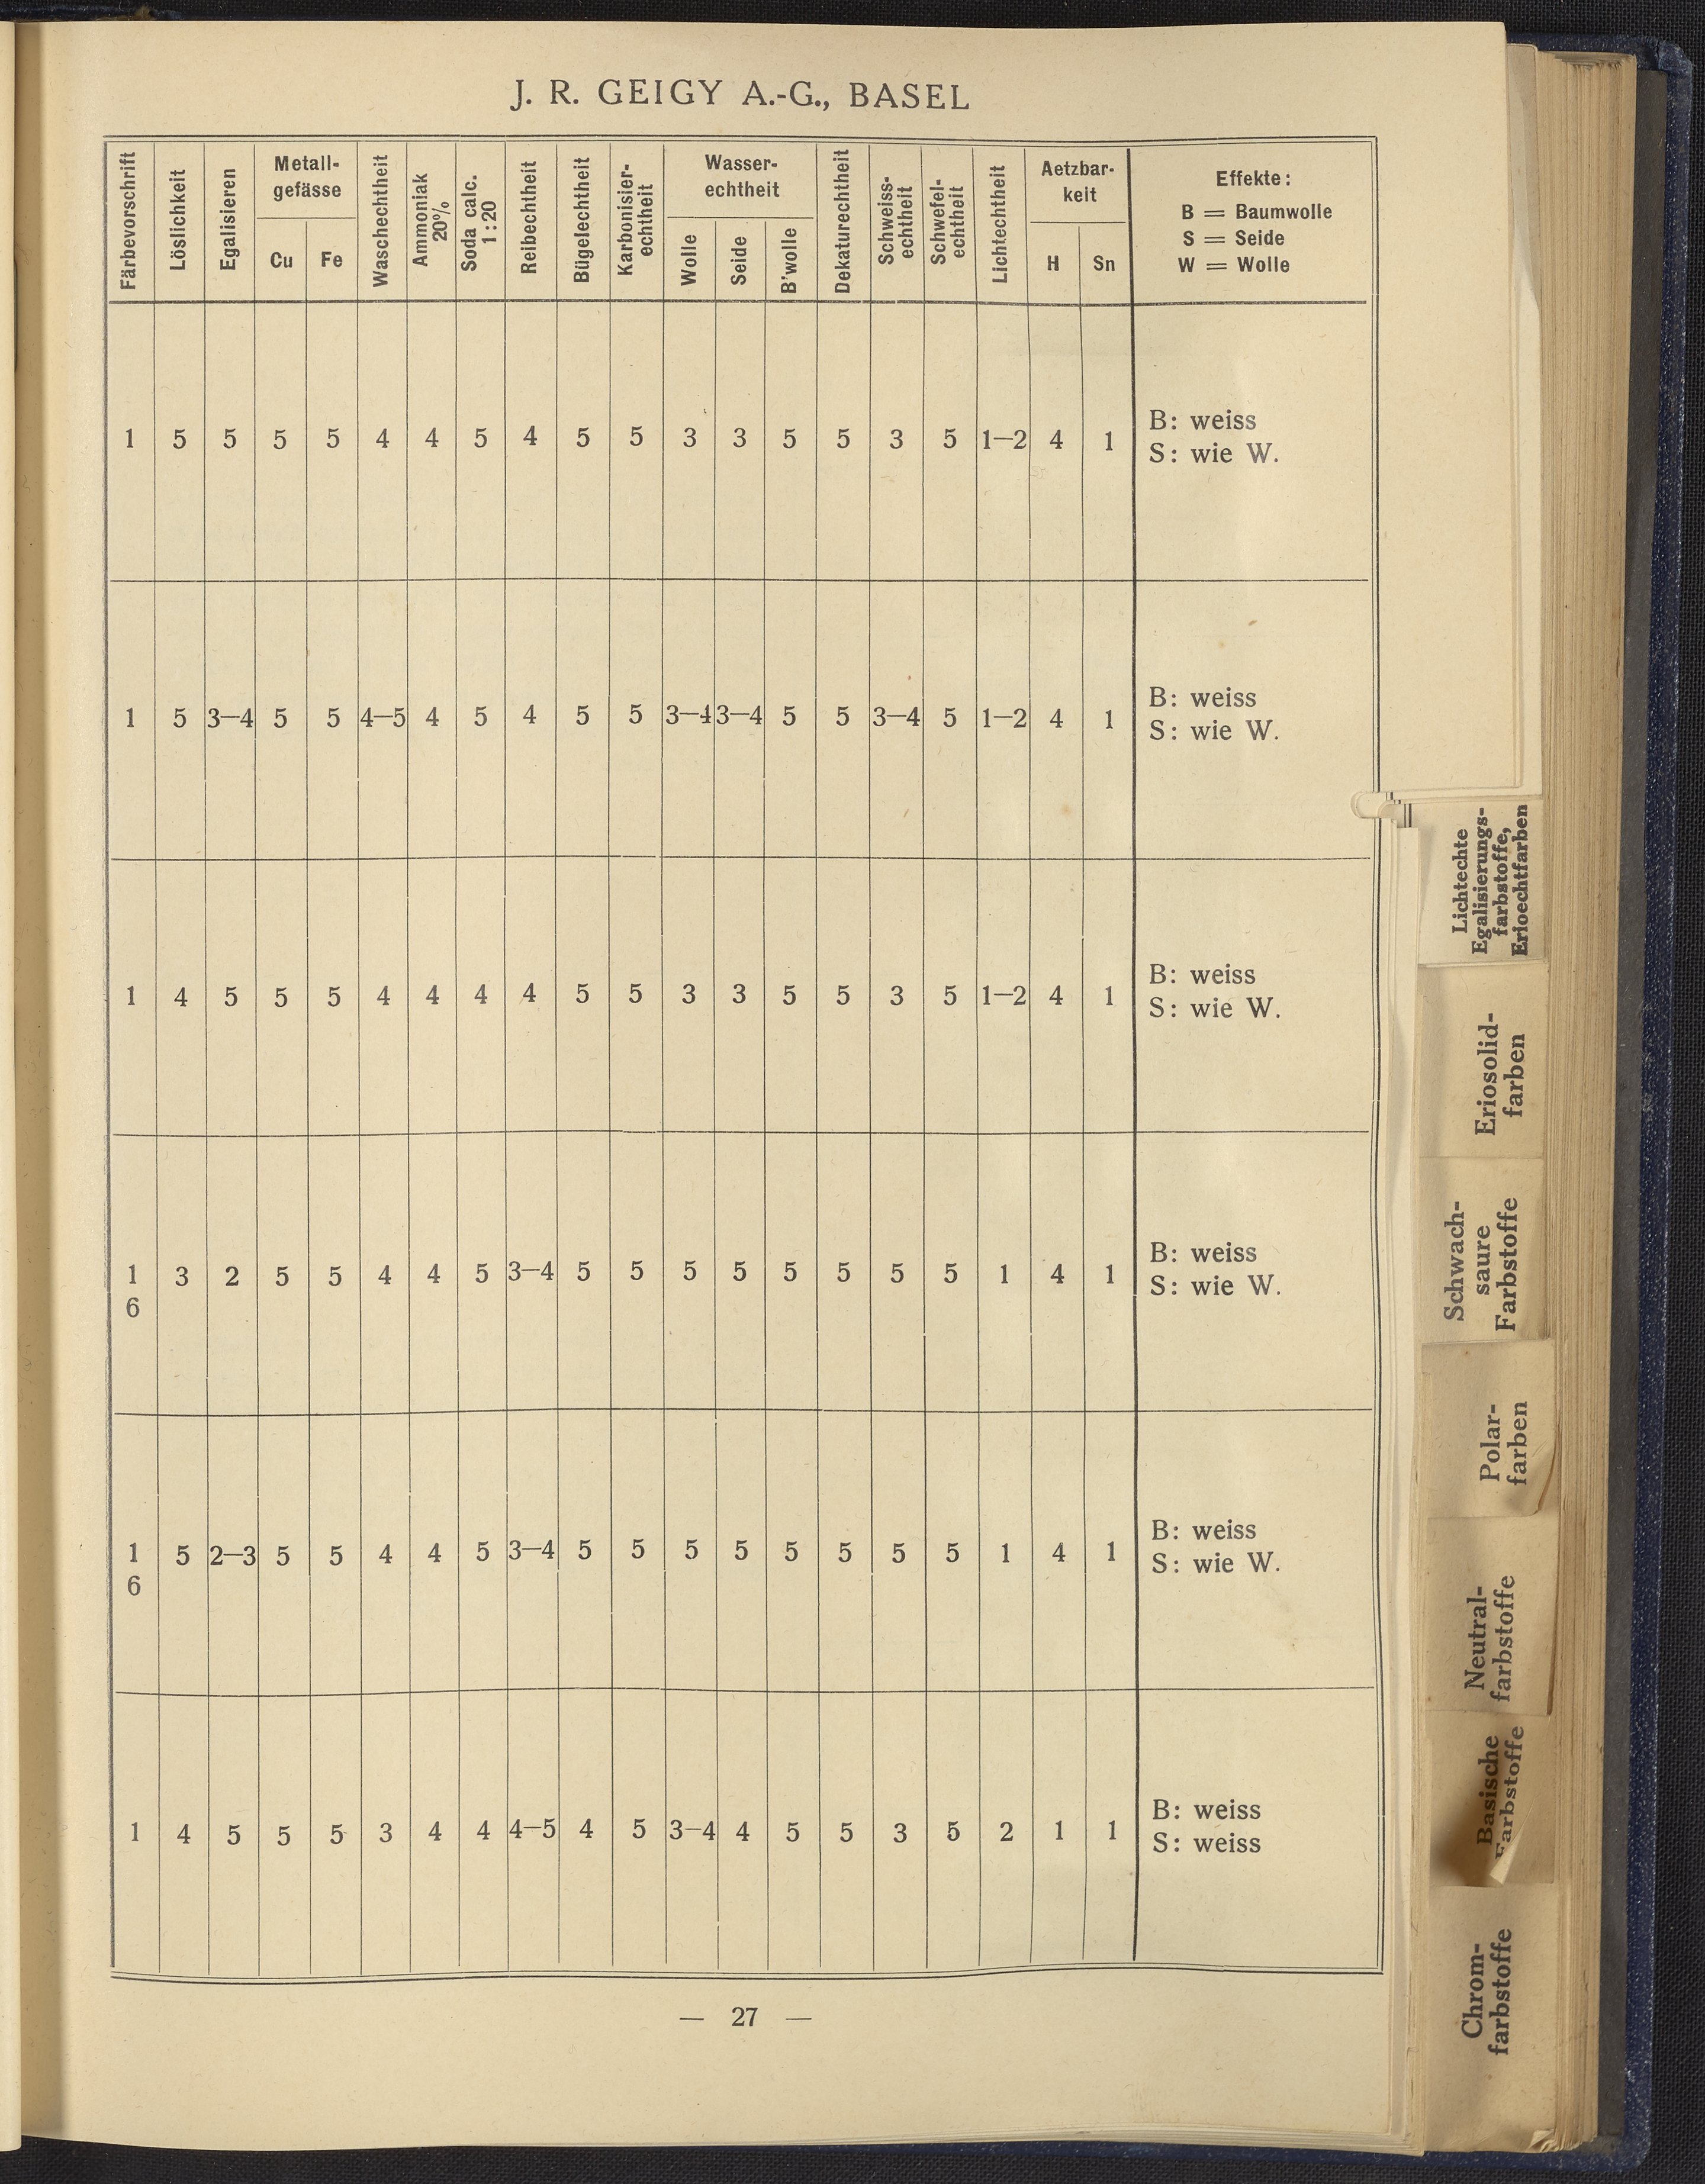 J. R. GEIGY A.-G., BASEL
Färbevorschrift
Löslichkeit
Egalisieren
Metall-
gefässe
Cu Fe
Waschechtheit
Ammoniak
20%
Soda calc.
1:20
Reibechtheit
Bügelechtheit
Karbonisier-
echtheit
Wasser-
echtheit
Wolle
Seide
B'wolle
Dekaturechtheit
Schweiss-
echtheit
Schwefel-
echtheit
Lichtechtheit
Aetzbar-
keit
H Sn
Effekte:
B = Baumwolle
S = Seide
W = Wolle
1 5 5 5 5 4 4 5 4 5 5 3 3 5 5 3 5 1—2 4 1
B: weiss
S: wie W.
1 5 3—4 5 5 4—5 4 5 4 5 5 3—4 3—4 5 5 3—4 5 1—2 4 1
B: weiss
S: wie W.
1 4 5 5 5 4 4 4 4 5 5 3 3 5 5 3 5 1—2 4 1
B: weiss
S: wie W.
1 3 2 5 5 4 4 5 3—4 5 5 5 5 5 5 5 5 1 4 1
6
B: weiss
S: wie W.
1 5 2—3 5 5 4 4 5 3—4 5 5 5 5 5 5 5 5 1 4 1
6
B: weiss
S: wie W.
1 4 5 5 5 3 4 4 4—5 4 5 3—4 4 5 5 3 5 2 1 1
B: weiss
S: weiss
— 27 —
Lichtechte
Egalisierungs-
farbstoffe,
Erioechtfarben
Eriosolid-
farben
Schwach-
saure
Farbstoffe
Polar-
farben
Neutral-
farbstoffe
Basische
Farbstoffe
Chrom-
farbstoffe